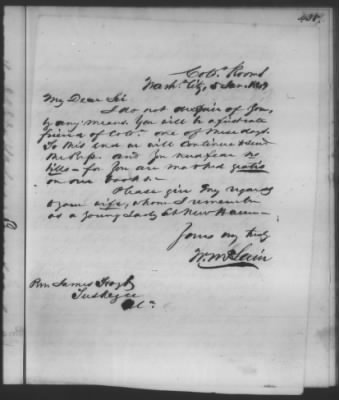 438.
Colo. Rooms
Wash. City, 5 Jan. 18
My Dear Sir
I do not despair of you,
by any means. You will be a fast
friend of Colo. one of these days.
To this end we will continue to send
the Rep. and you need fear no
bills — for you are marked gratis
on our books. —
Please give my regards
to your wife, whom I remember
as a young Lady at New Haven —
Yours very truly
W. McLain
Rev. James
Tuskegee
Al.